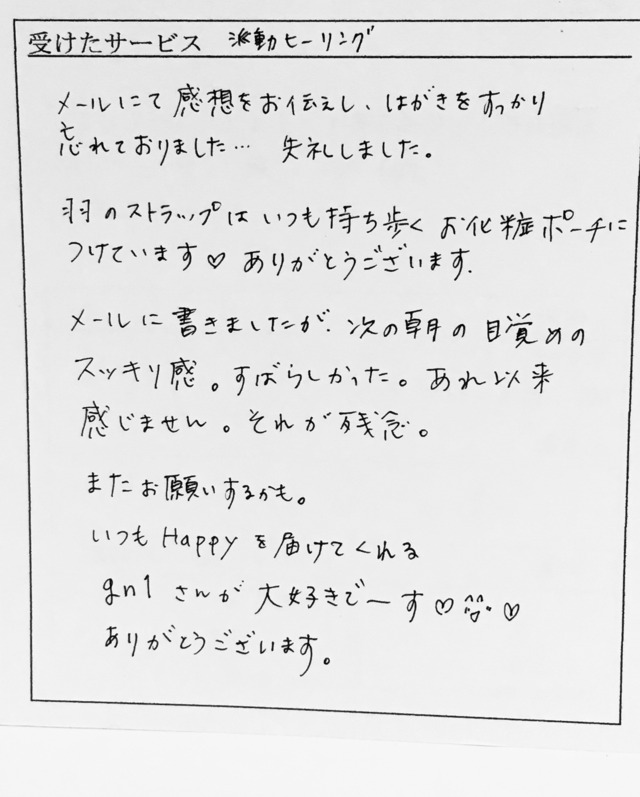 受けたサービス 波動ヒーリング
メールにて感想をお伝えし、はがきをすっかり
忘れておりました… 失礼しました。
羽のストラップはいつも持ち歩くお化粧ポーチに
つけています♡ ありがとうございます.
メールに書きましたが、次の朝の目覚めの
スッキリ感。すばらしかった。あれ以来
感じません。それが残念。
またお願いするかも。
いつもHappyを届けてくれる
gn1さんが大好きでーす♡^^♡
ありがとうございます。